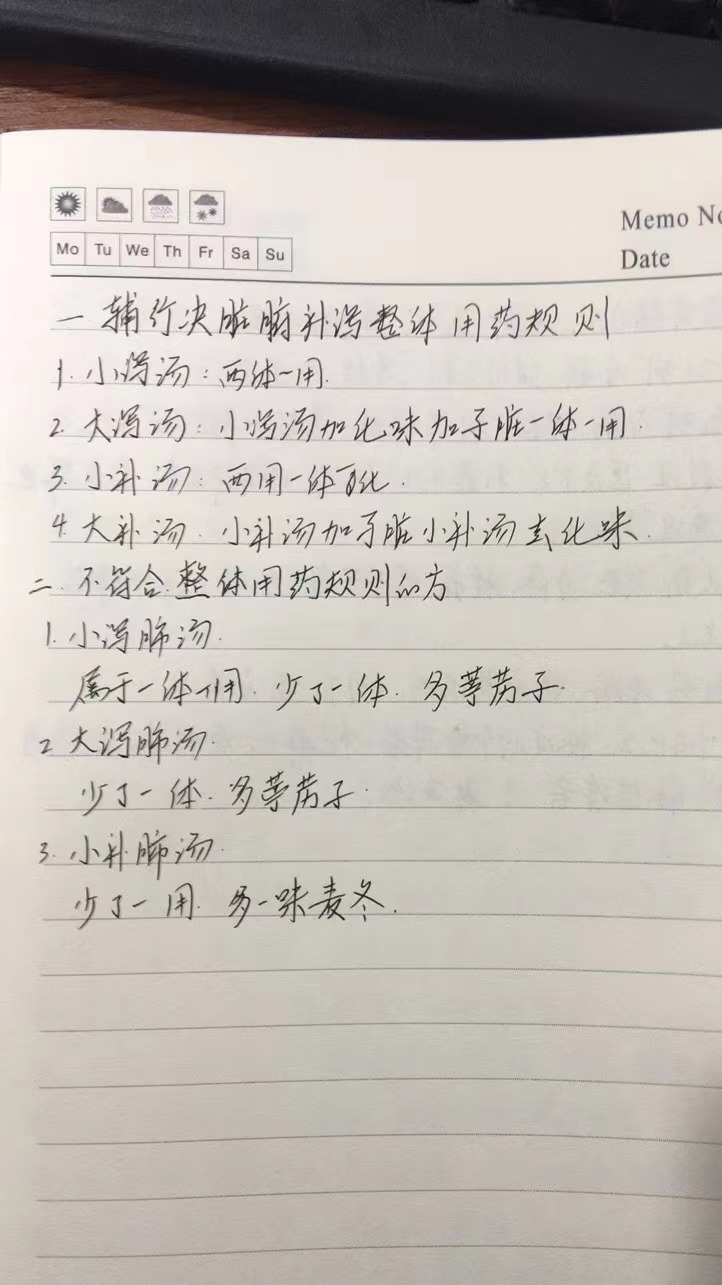 Memo No
Mo Tu We Th Fr Sa Su
Date
一 辅行决脏腑补泻整体用药规则
1. 小泻汤：两体一用.
2. 大泻汤：小泻汤加化味加子脏一体一用.
3. 小补汤：两用一体一化.
4. 大补汤. 小补汤加子脏小补汤去化味.
二. 不符合整体用药规则的方
1. 小泻肺汤.
属于一体一用. 少了一体. 多葶苈子.
2 大泻肺汤.
少了一体. 多葶苈子.
3. 小补肺汤.
少了一用. 多一味麦冬.